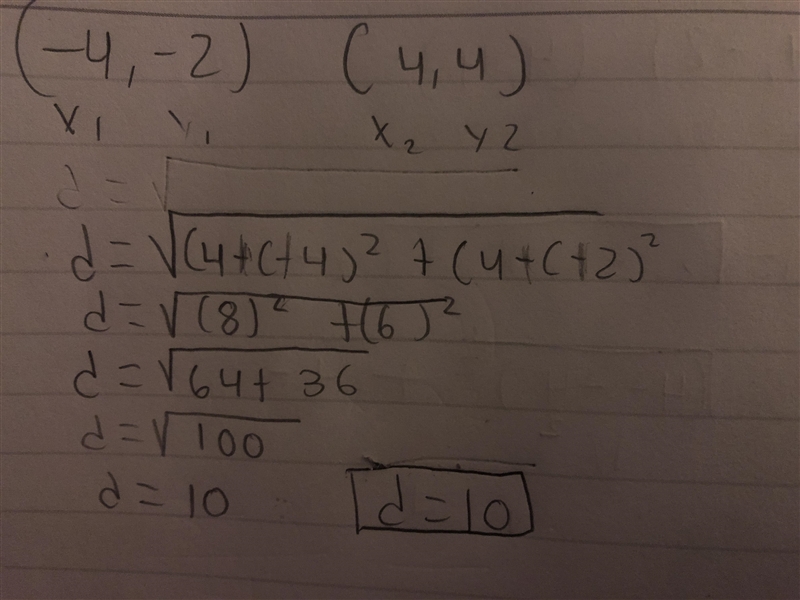 (-4, -2) (4, 4)
x₁ y₁ x₂ y2
d = √
d = √(4+(+4)² + (4+(+2)²
d = √(8)² +(6)²
d = √64+ 36
d = √100
d = 10 d = 10